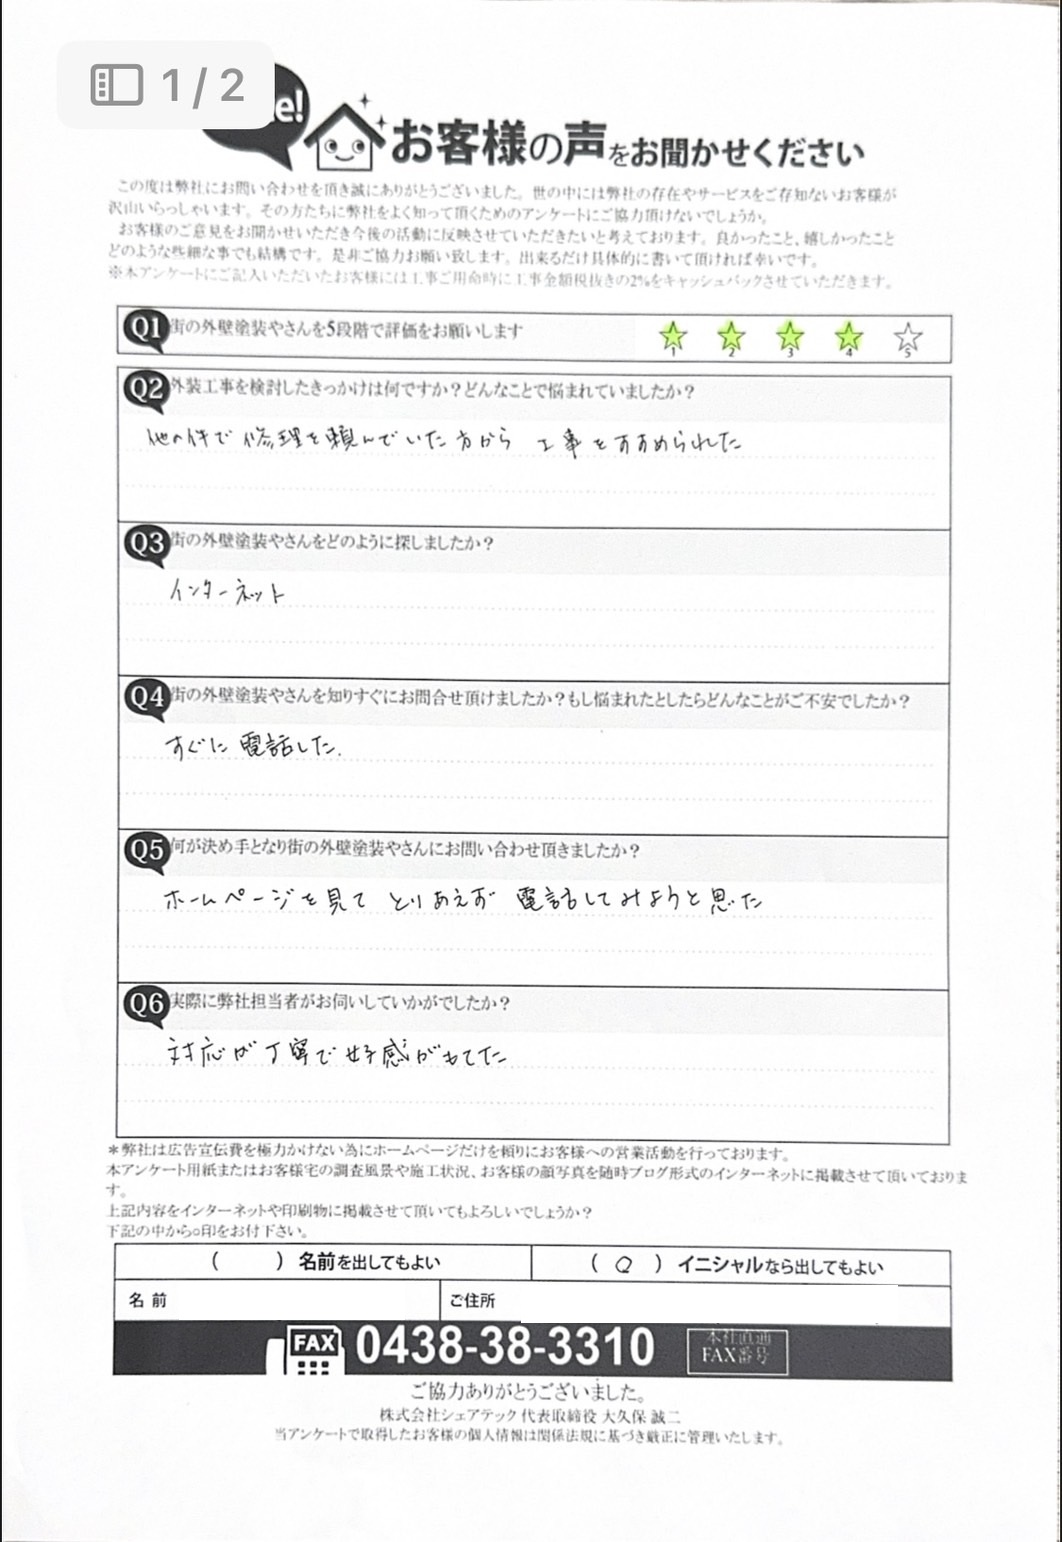 1/2
e!
お客様の声をお聞かせください
この度は弊社にお問い合わせを頂き誠にありがとうございました。世の中には弊社の存在やサービスをご存知ないお客様が
沢山いらっしゃいます。その方たちに弊社をよく知って頂くためのアンケートにご協力頂けないでしょうか。
お客様のご意見をお聞かせいただき今後の活動に反映させていただきたいと考えております。良かったこと、嬉しかったこと
どのような些細な事でも結構です。是非ご協力お願い致します。出来るだけ具体的に書いて頂ければ幸いです。
※本アンケートにご記入いただいたお客様には工事ご用命時に工事金額税抜きの2%をキャッシュバックさせていただきます。
Q1 街の外壁塗装やさんを5段階で評価をお願いします
1 2 3 4 5
Q2 外装工事を検討したきっかけは何ですか？どんなことで悩まれていましたか？
他の件で修理を頼んでいた方から 工事をすすめられた
Q3 街の外壁塗装やさんをどのように探しましたか？
インターネット
Q4 街の外壁塗装やさんを知りすぐにお問合せ頂けましたか？もし悩まれたとしたらどんなことがご不安でしたか？
すぐに電話した.
Q5 何が決め手となり街の外壁塗装やさんにお問い合わせ頂きましたか？
ホームページを見て とりあえず 電話してみようと思った
Q6 実際に弊社担当者がお伺いしていかがでしたか？
対応が丁寧で好感がもてた
＊弊社は広告宣伝費を極力かけない為にホームページだけを頼りにお客様への営業活動を行っております。
本アンケート用紙またはお客様宅の調査風景や施工状況、お客様の顔写真を随時ブログ形式のインターネットに掲載させて頂いておりま
す。
上記内容をインターネットや印刷物に掲載させて頂いてもよろしいでしょうか？
下記の中から○印をお付下さい。
（　　）名前を出してもよい （○）イニシャルなら出してもよい
名 前 ご住所
FAX 0438-38-3310 本社直通
FAX番号
ご協力ありがとうございました。
株式会社シェアテック 代表取締役 大久保 誠二
当アンケートで取得したお客様の個人情報は関係法規に基づき厳正に管理いたします。